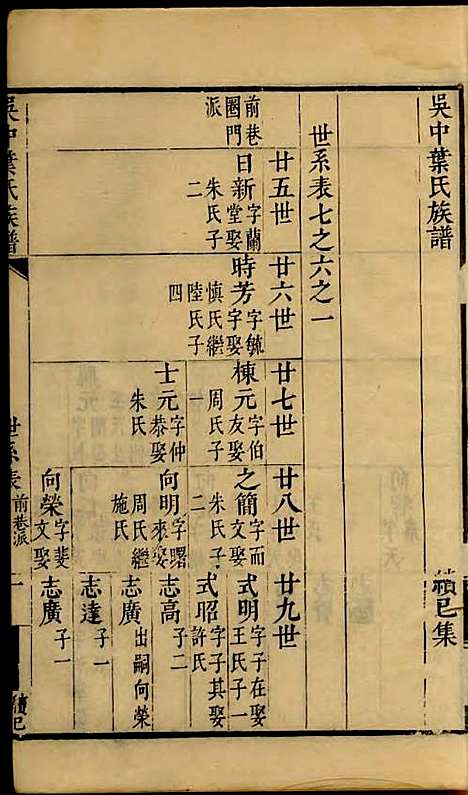 吳中葉氏族譜
續已集
世系表七之六之一
廿五世
廿六世
廿七世
廿八世
廿九世
前巷圈門派
日新字蘭堂娶朱氏子二
時芳字毓字娶慎氏繼陸氏子四
棟元字伯友娶周氏子一
之簡字而文娶朱氏子二
式明字子在娶王氏子一
式昭字子其娶許氏
士元字仲恭娶朱氏
向明字曙來娶周氏繼施氏
志高子二
志廣出嗣向榮
志達子一
向榮字斐文娶
志廣子一
吳中葉氏族譜
世系表
前巷派
一
續已